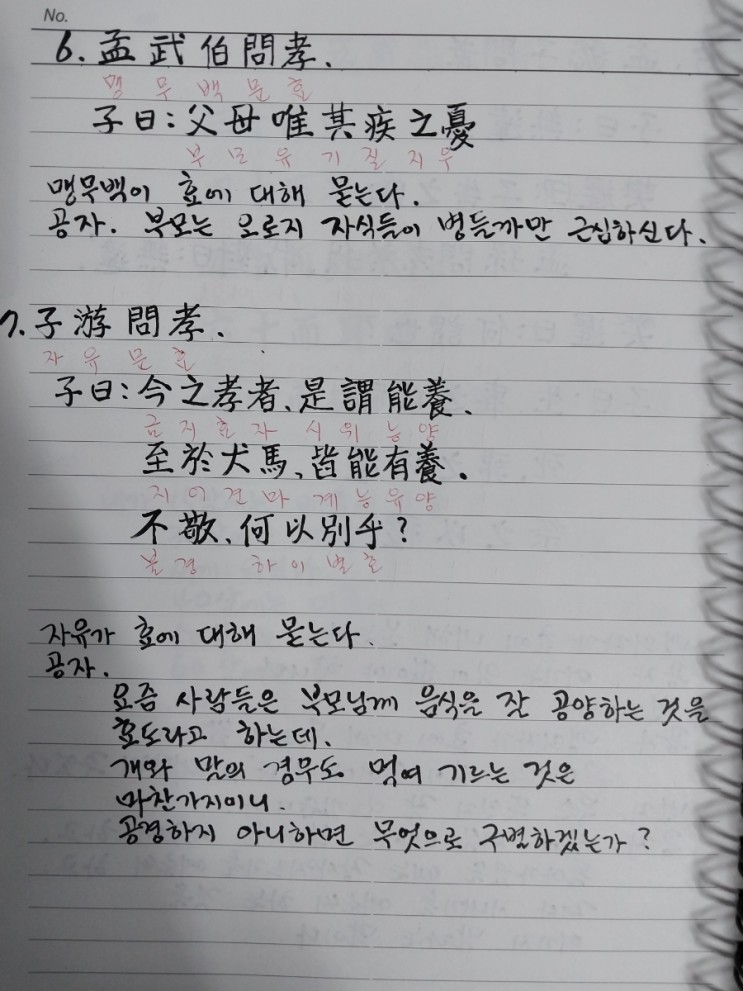 No.
6. 孟武伯問孝.
맹무백문효
子曰: 父母唯其疾之憂
부모유기질지우
맹무백이 효에 대해 묻는다.
공자. 부모는 오로지 자식들이 병들까만 근심하신다.
7. 子游問孝.
자유문효
子曰: 今之孝者、是謂能養.
금지효자 시위능양
至於犬馬、皆能有養.
지어견마 개능유양
不敬、何以別乎?
불경 하이별호
자유가 효에 대해 묻는다.
공자.
요즘 사람들은 부모님께 음식을 잘 공양하는 것을
효도라고 하는데.
개와 말의 경우도 먹여 기르는 것은
마찬가지이니.
공경하지 아니하면 무엇으로 구별하겠는가?